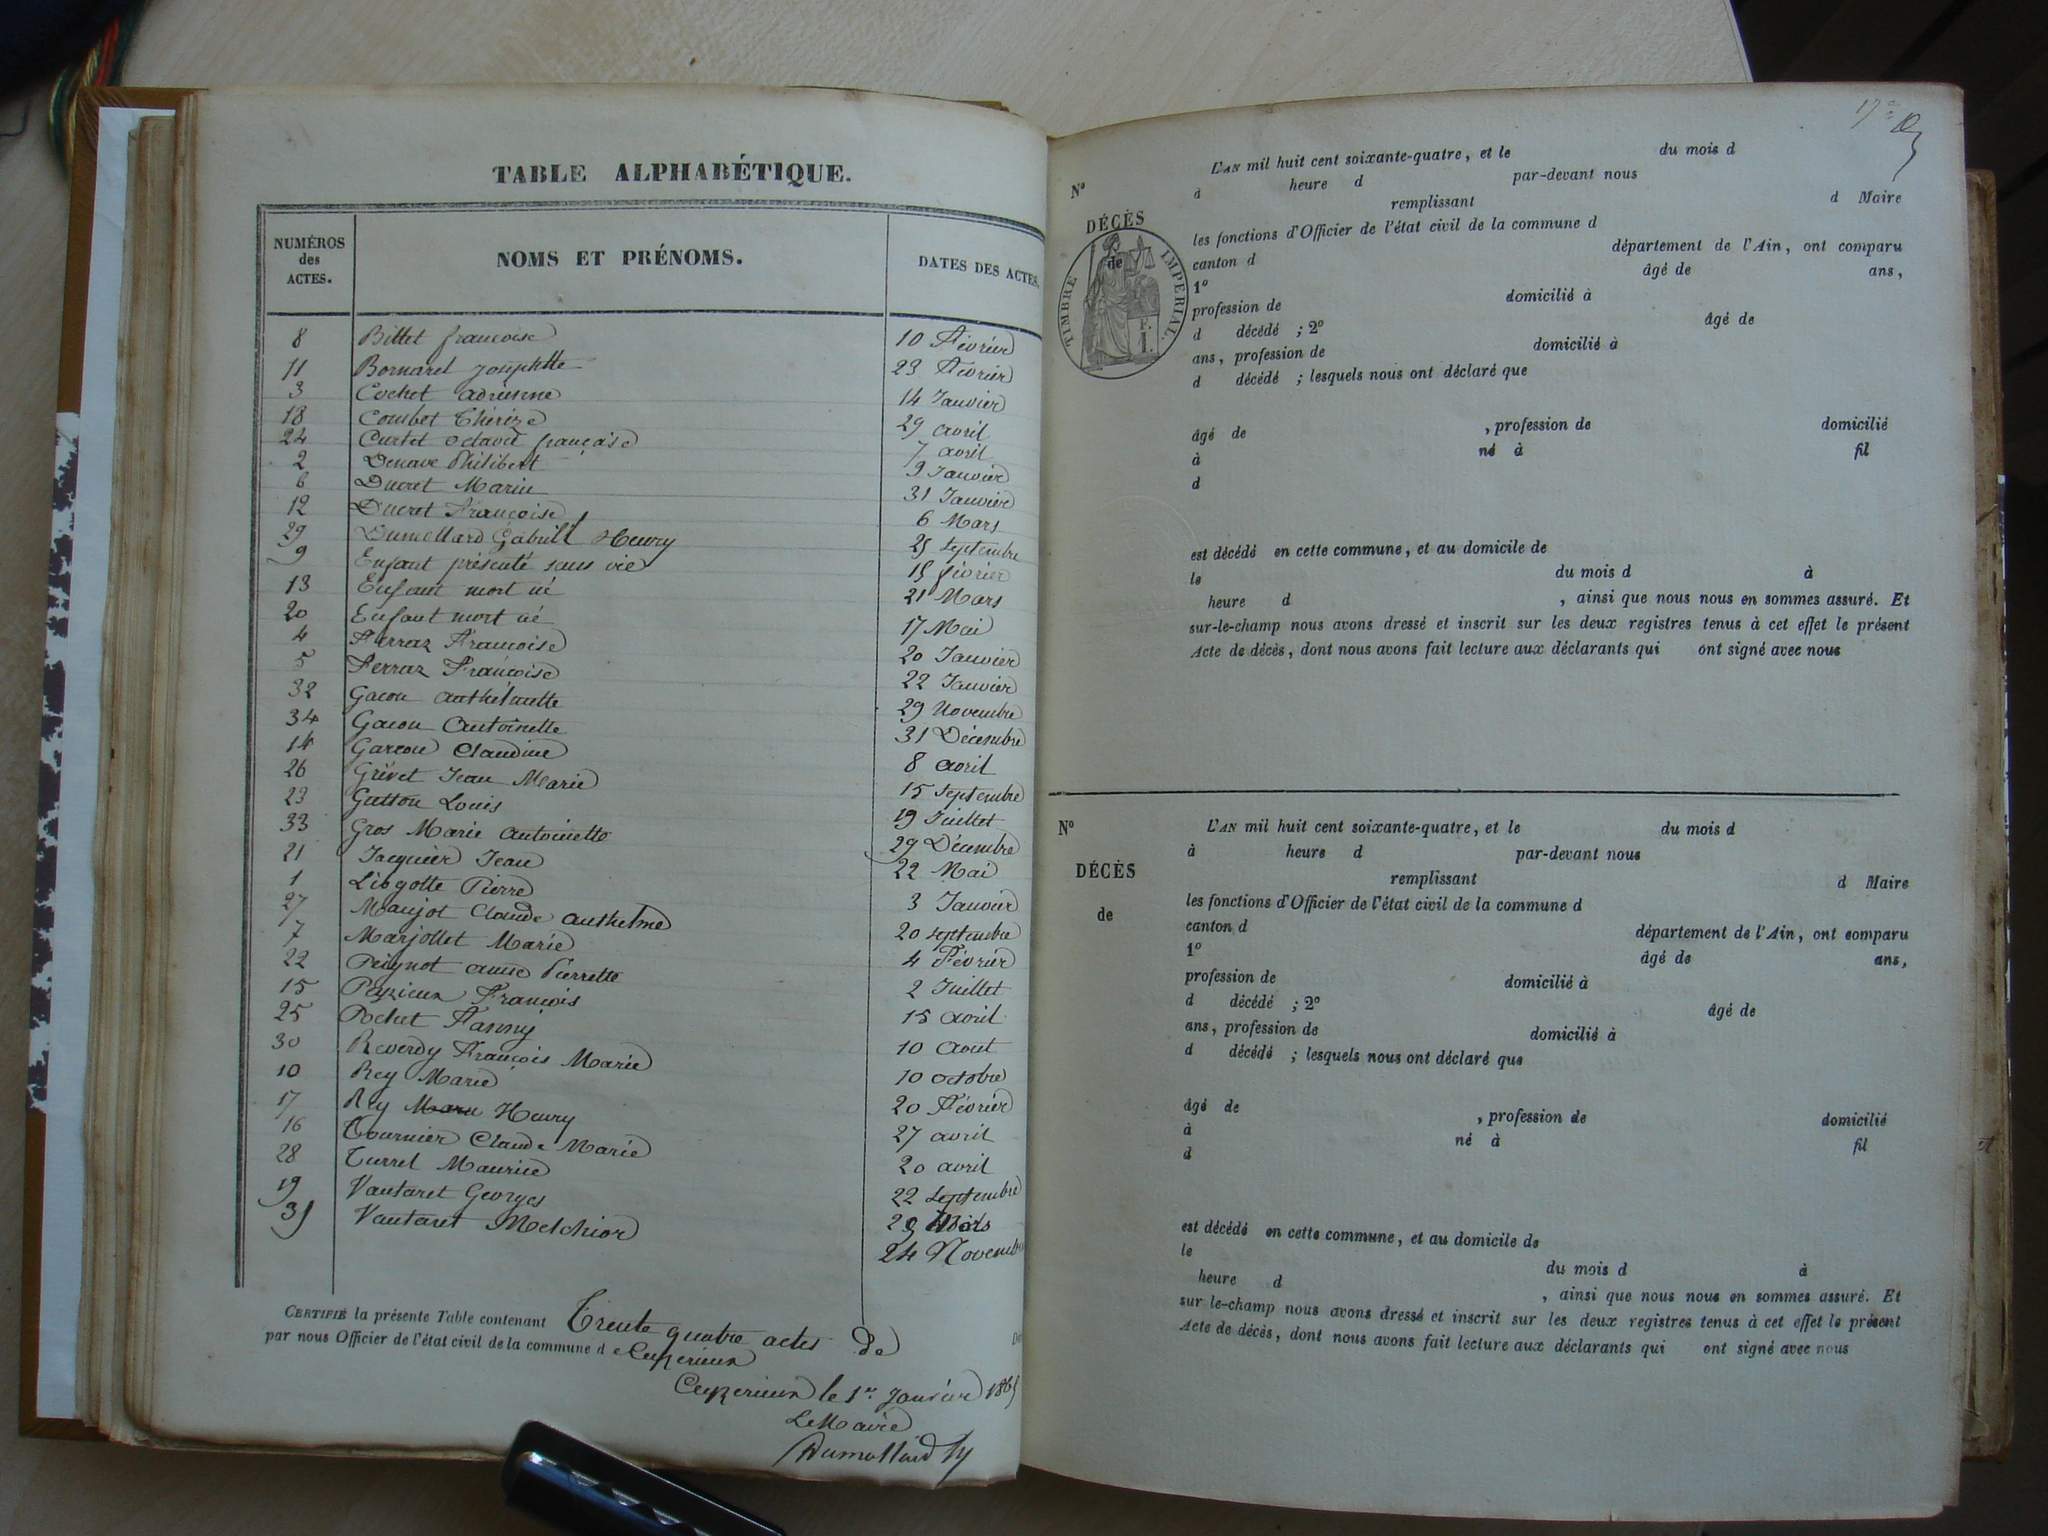 TABLE ALPHABÉTIQUE.
NUMÉROS des ACTES. NOMS ET PRÉNOMS. DATES DES ACTES.
8 Billet françoise 10 Février
11 Bornarel Josephtte 23 Février
3 Cochet adrienne 14 Janvier
18 Combet Thérèze 29 avril
24 Curtet octavie françoise 7 avril
2 Denave Philibert 9 Janvier
6 Ducret Marie 31 Janvier
12 Ducret Françoise 6 Mars
29 Dumollard Gabriel Henry 25 septembre
9 Enfant présenté sans vie 15 février
13 Enfant mort né 21 Mars
20 Enfant mort né 17 Mai
4 Ferraz Françoise 20 Janvier
5 Ferraz Françoise 22 Janvier
32 Gacon anthelmette 29 Novembre
34 Gacon Antoinette 31 Décembre
14 Garcon Claudine 8 avril
26 Grivet Jean Marie 15 Septembre
23 Gutton Louis 19 Juillet
33 Gros Marie antoinette 29 Décembre
21 Jacquier Jean 22 Mai
1 Liogotte Pierre 3 Janvier
27 Maujot Claude anthelme 20 septembre
7 Marjollet Marie 4 Février
22 Peignot anne Pierrette 2 Juillet
15 Pezieux François 15 avril
25 Pochet Fanny 10 Aout
30 Reverdy François Marie 10 octobre
10 Rey Marie 20 Février
17 Rey Marie Henry 27 avril
16 Tournier Claude Marie 20 avril
28 Turrel Maurice 22 Septembre
19 Vautaret Georges
31 Vautaret Melchior 24 Novembre
CERTIFIÉ la présente Table contenant Trente quatre actes De
par nous Officier de l'état civil de la commune d e Ceyzerieux
Ceyzerieux le 1er Janvier 1865
Le Maire
Dumollard
17e
N° L'AN mil huit cent soixante-quatre, et le du mois d
à heure d par-devant nous
remplissant d Maire
DÉCÈS
de
TIMBRE IMPÉRIAL.
les fonctions d'Officier de l'état civil de la commune d
canton d département de l'Ain, ont comparu
1° âgé de ans,
profession de domicilié à
d décédé ; 2° âgé de
ans, profession de domicilié à
d décédé ; lesquels nous ont déclaré que
âgé de , profession de domicilié
à né à fil
d
est décédé en cette commune, et au domicile de
le du mois d à
heure d , ainsi que nous nous en sommes assuré. Et
sur-le-champ nous avons dressé et inscrit sur les deux registres tenus à cet effet le présent
Acte de décès, dont nous avons fait lecture aux déclarants qui ont signé avec nous
N° L'AN mil huit cent soixante-quatre, et le du mois d
à heure d par-devant nous
DÉCÈS
remplissant d Maire
les fonctions d'Officier de l'état civil de la commune d
de
canton d département de l'Ain, ont comparu
1° âgé de ans,
profession de domicilié à
d décédé ; 2° âgé de
ans, profession de domicilié à
d décédé ; lesquels nous ont déclaré que
âgé de , profession de domicilié
à né à fil
d
est décédé en cette commune, et au domicile de
le du mois d à
heure d , ainsi que nous nous en sommes assuré. Et
sur le-champ nous avons dressé et inscrit sur les deux registres tenus à cet effet le présent
Acte de décès, dont nous avons fait lecture aux déclarants qui ont signé avec nous